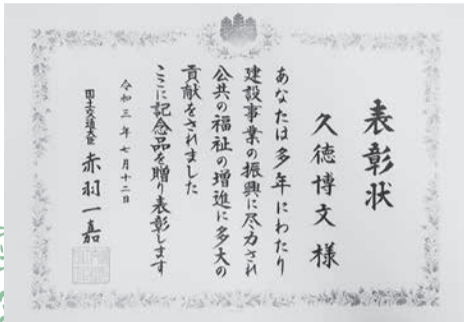 表彰状
久徳博文 様
あなたは多年にわたり
建設事業の振興に尽力され
公共の福祉の増進に多大の
貢献をされました
ここに記念品を贈り表彰します
令和三年七月十二日
国土交通大臣 赤羽一嘉